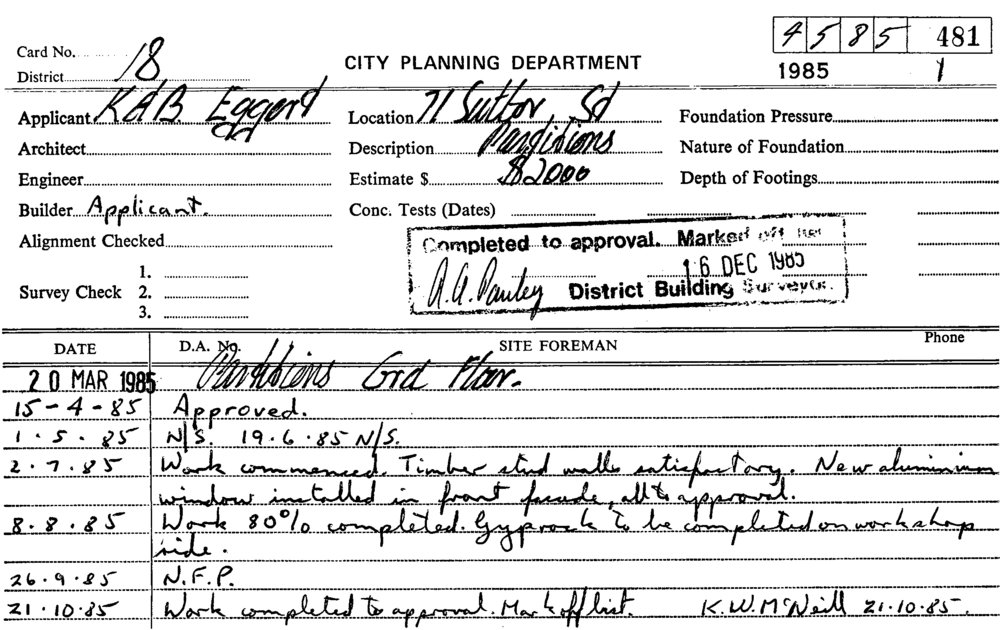 4 5 8 5 481
Card No. 18
District
CITY PLANNING DEPARTMENT
1985 1
Applicant K&B Eggert
Location 71 Sutton Sd
Foundation Pressure
Architect
Description Partitions
Nature of Foundation
Engineer
Estimate $ $2000
Depth of Footings
Builder Applicant.
Conc. Tests (Dates)
Alignment Checked
Completed to approval. Marked off list
16 DEC 1985
Survey Check 1.
2.
3.
A.A. Pauley District Building Surveyor.
DATE D.A. No. SITE FOREMAN Phone
20 MAR 1985 Partitions Grd Floor.
15-4-85 Approved.
1.5.85 N/S. 19.6.85 N/S.
2.7.85 Work commenced. Timber stud walls satisfactory. New aluminium
window installed in front facade, all to approval.
8.8.85 Work 80% completed. Gyprock to be completed on workshop
side.
26.9.85 N.F.P.
21.10.85 Work completed to approval. Mark off list. K.W. McNeill 21.10.85.